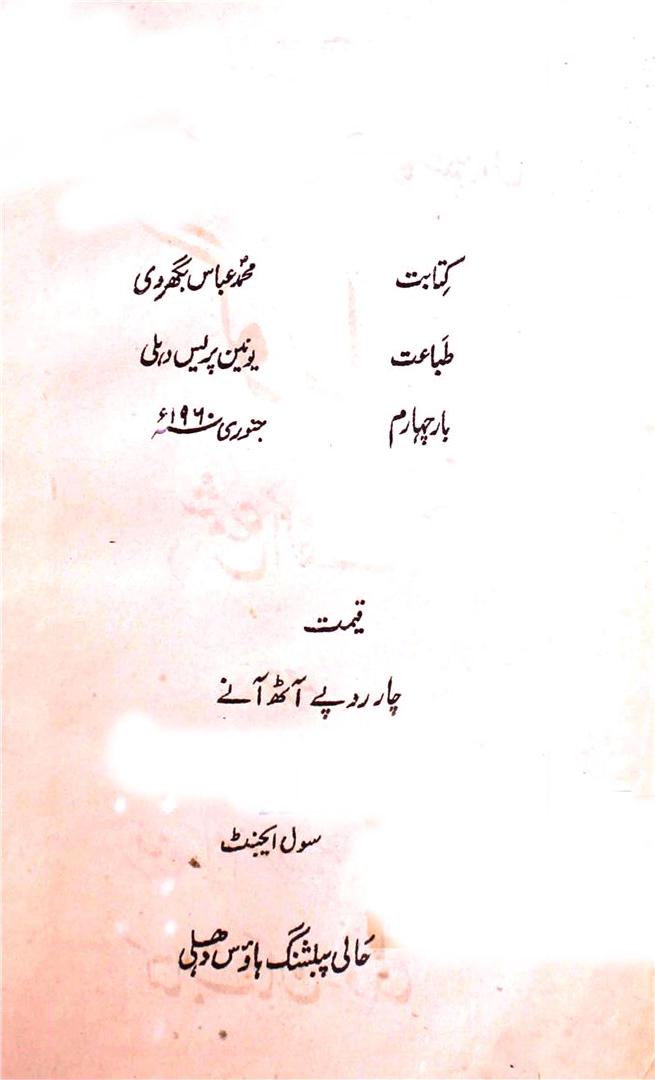 کتابت محمد عباس بگھروی
طباعت یونین پریس دہلی
بار چہارم جنوری ۱۹۶۰ء
قیمت
چار روپے آٹھ آنے
سول ایجنٹ
حالی پبلشنگ ہاؤس دھلی